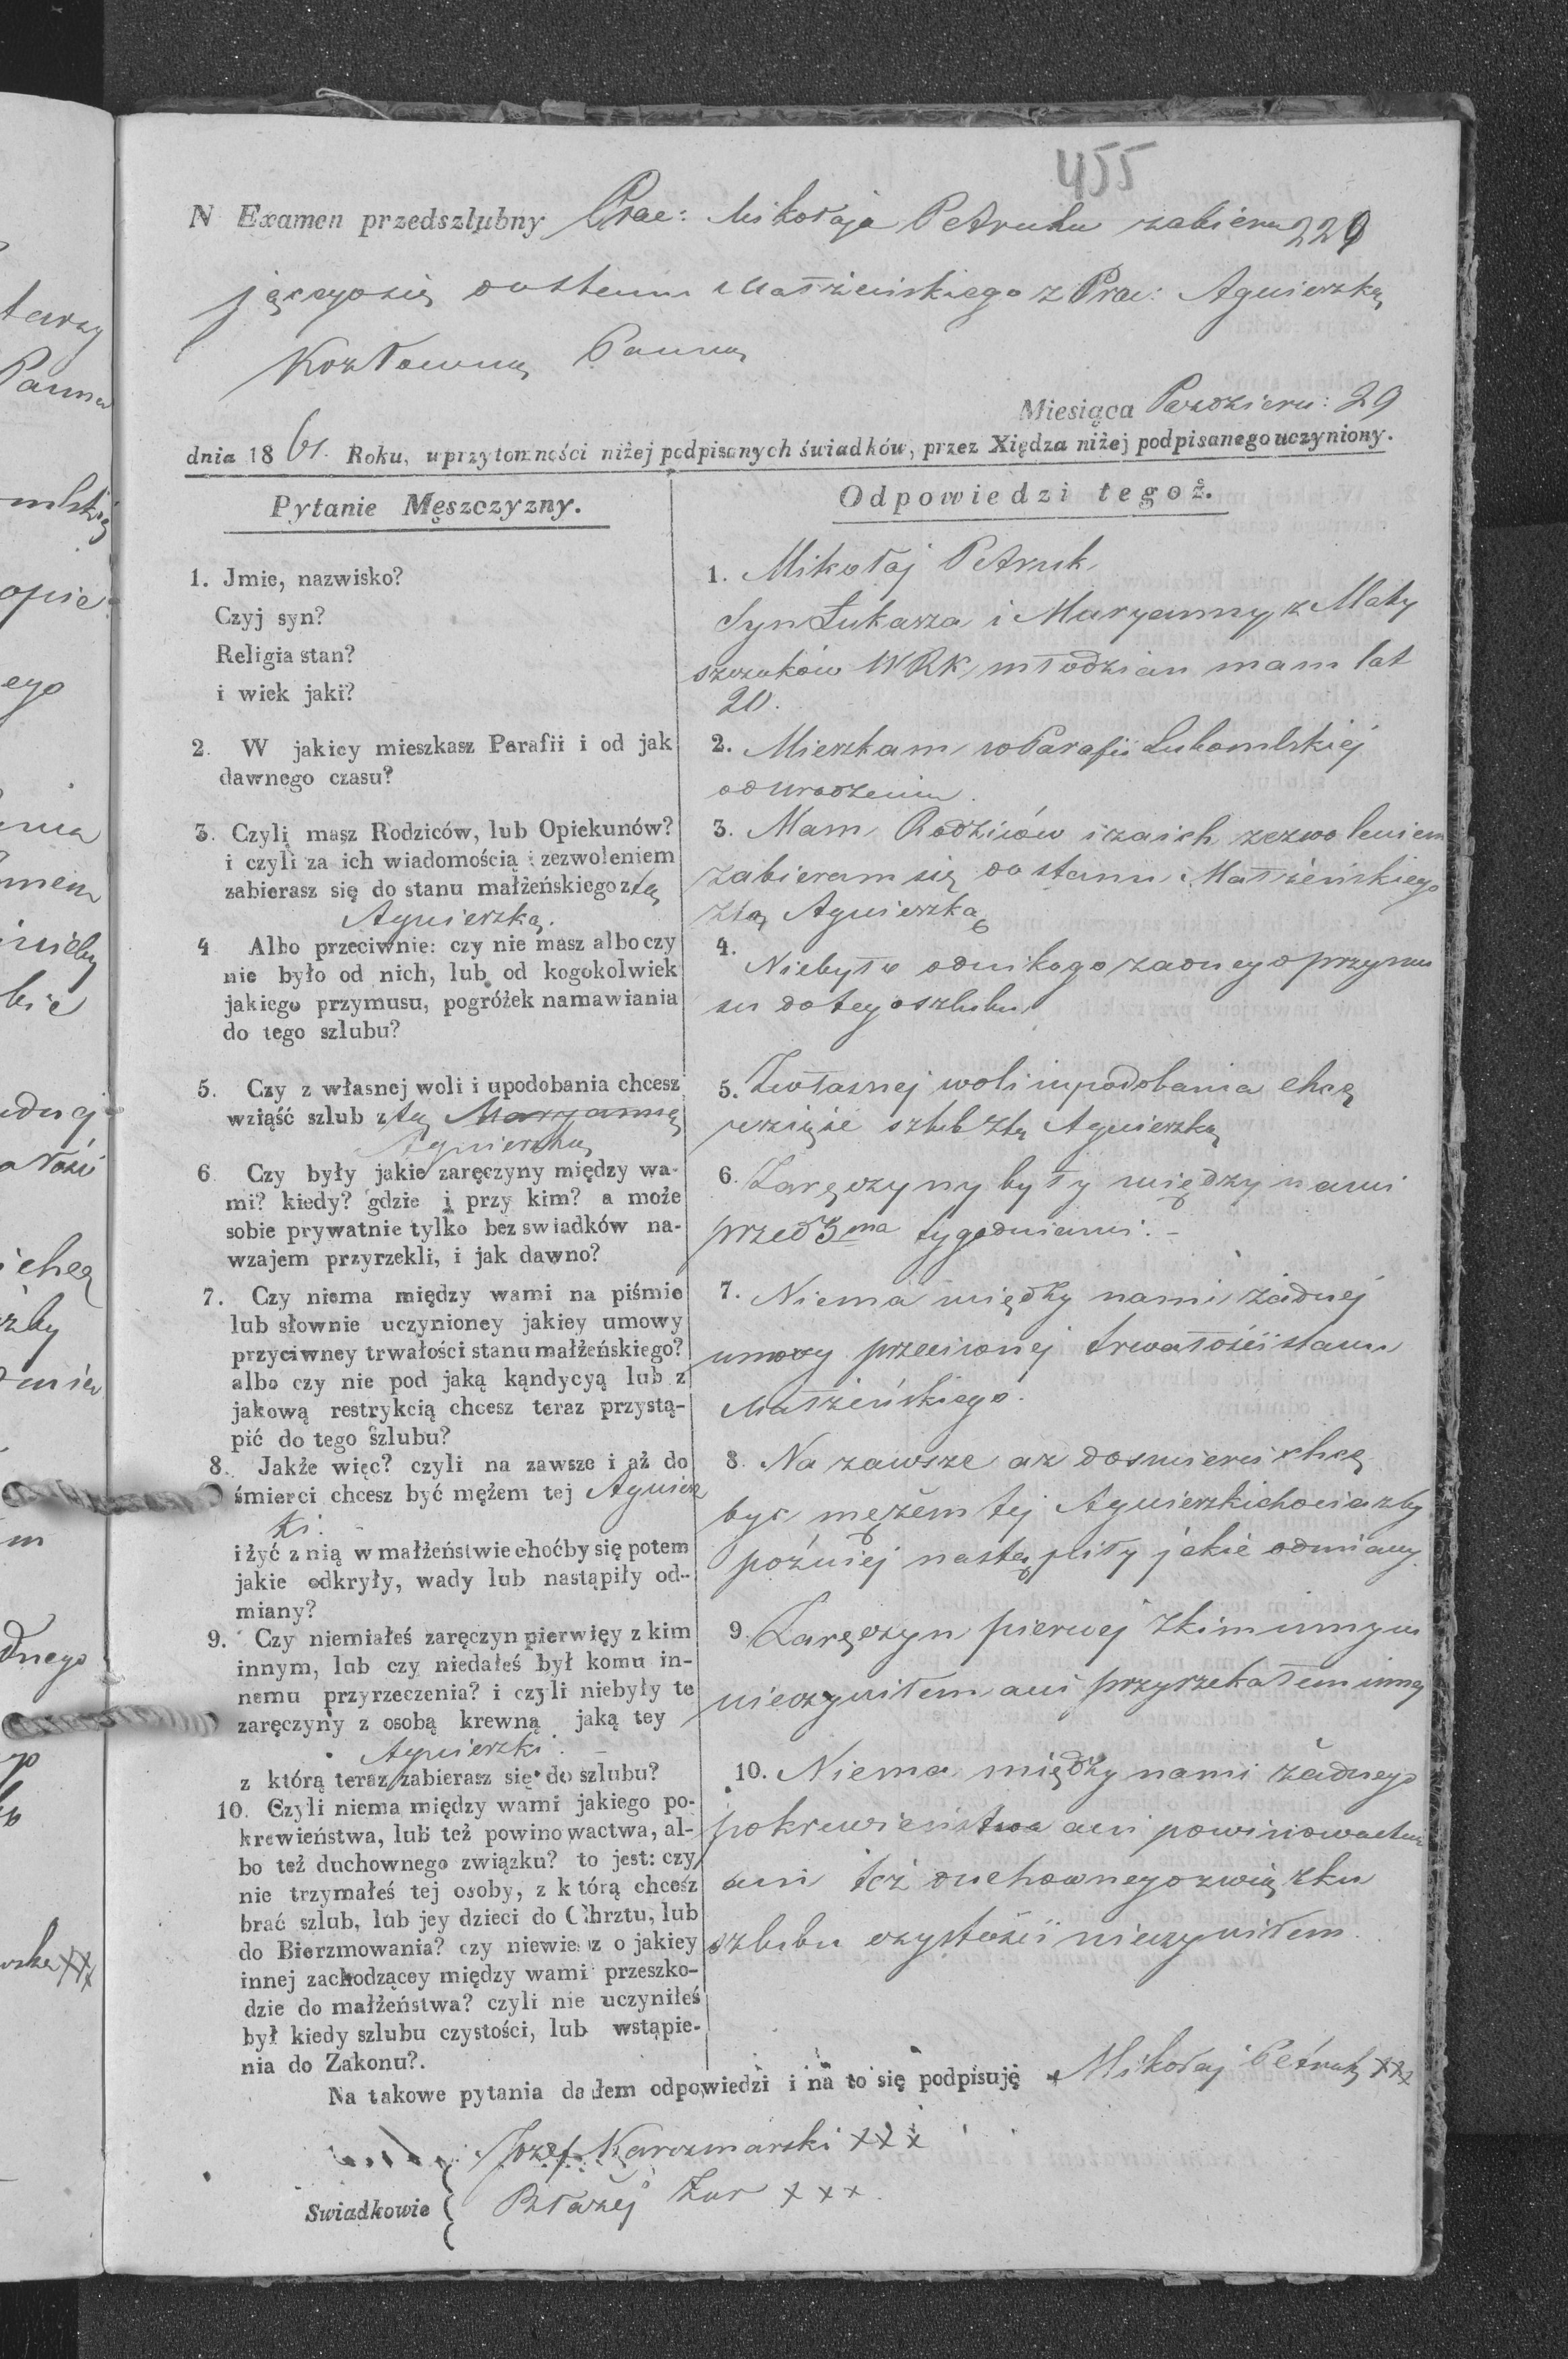 455
N Examen przedszlubny Prae: Mikołaja Petruka zabiera 220
jącegosię dostanu Małżeńskiego z Prae: Agnieszką
Kozłowną Panną
Miesiąca Pazdziern: 29
dnia 1861. Roku, uprzytomności niżej podpisanych świadków, przez Xiędza niżej podpisanego uczyniony.
Pytanie Męszczyzny.
1. Jmie, nazwisko?
Czyj syn?
Religia stan?
i wiek jaki?
2. W jakiey mieszkasz Parafii i od jak
dawnego czasu?
3. Czyli masz Rodziców, lub Opiekunów?
i czyli za ich wiadomością i zezwoleniem
zabierasz się do stanu małżeńskiego z tą
Agnieszką.
4 Albo przeciwnie: czy nie masz albo czy
nie było od nich, lub od kogokolwiek
jakiego przymusu, pogróżek namawiania
do tego szlubu?
5. Czy z własnej woli i upodobania chcesz
wziąść szlub z tą Maryanną
Agnieszką
6 Czy były jakie zaręczyny między wa-
mi? kiedy? gdzie i przy kim? a może
sobie prywatnie tylko bez swiadków na-
wzajem przyrzekli, i jak dawno?
7. Czy niema między wami na piśmie
lub słownie uczynioney jakiey umowy
przyciwney trwałości stanu małżeńskiego?
albo czy nie pod jaką kąndycyą lub z
jakową restrykcią chcesz teraz przystą-
pić do tego szlubu?
8. Jakże więc? czyli na zawsze i aż do
śmierci chcesz być mężem tej Agniesz
ki.
i żyć z nią w małżeństwie choćby się potem
jakie odkryły, wady lub nastąpiły od-
miany?
9. Czy niemiałeś zaręczyn pierwięy z kim
innym, lub czy niedałeś był komu in-
nemu przyrzeczenia? i czyli niebyły te
zaręczyny z osobą krewną jaką tey
Agnieszki.
z którą teraz zabierasz się do szlubu?
10. Czyli niema między wami jakiego po-
krewieństwa, lub też powinowactwa, al-
bo też duchownego związku? to jest: czy
nie trzymałeś tej osoby, z którą chcesz
brać szlub, lub jey dzieci do Chrztu, lub
do Bierzmowania? czy niewiesz o jakiey
innej zachodzącey między wami przeszko-
dzie do małżeństwa? czyli nie uczyniłeś
był kiedy szlubu czystości, lub wstąpie-
nia do Zakonu?.
Odpowiedzi tegoż.
1. Mikołaj Petruk
Syn Łukasza i Maryanny z Maty
szczuków WRK młodzian mam lat
20.
2. Mieszkam w Parafii Lubomlskiéj
od urodzenia.
3. Mam Rodziców i za ich zezwoleniem
zabieram się do stanu Małżeńskiego
z tą Agnieszką
4. Niebyło od nikogo żadnego przymu
su do tego szlubu
5. Z własnej woli i upodobania chcę
wziąść szlub z tą Agnieszką
6. Zaręczyny były między nami
przed 3ma tygodniami. -
7. Niema między nami żádnej
umowy przeciwnej trwałości stanu
Małżeńskiego.
8. Na zawsze aż do śmierci chcę
być mężem tej Agnieszki chociażby
pożniéj nastąpiły jakie odmiany.
9. Zaręczyn pierwej z kim innym
nieczyniłem ani przyrzekałem inną
10. Niema między nami żadnego
pokrewieństwa ani powinowactwa
ani też duchownego związku
szlubu czystości nieczyniłem.
Na takowe pytania dałem odpowiedzi i na to się podpisuję Mikołaj Petruk xxx
Józef Karczmarski xxx
Swiadkowie { Błażéj Żur xxx.